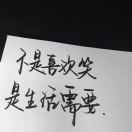 不是喜欢笑
是生活需要.